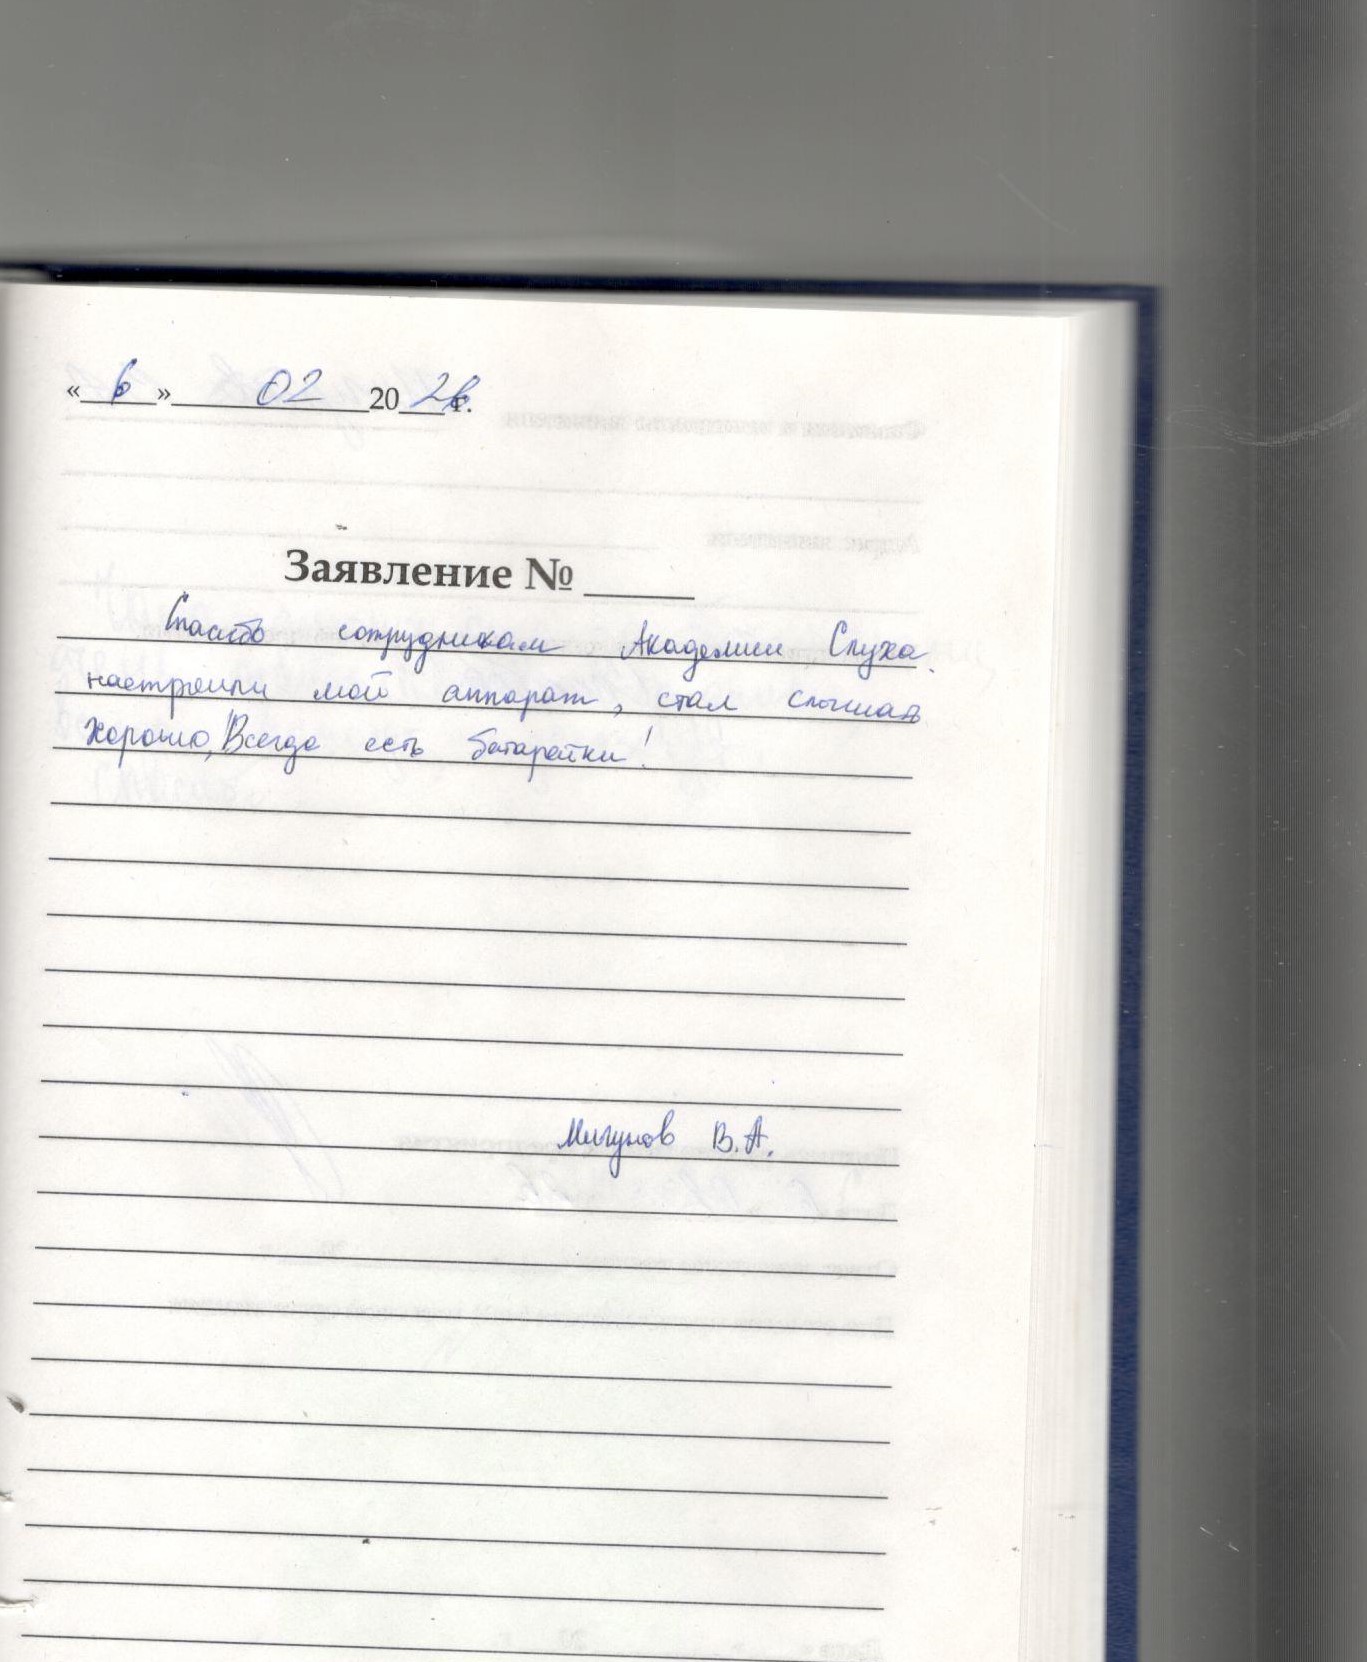 « 6 » 02 2026 г.
Заявление № ____
Спасибо сотрудникам Академии Слуха.
настроили мой аппарат, стал слышать
хорошо, Всегда есть батарейки!
Мигунов В.А.